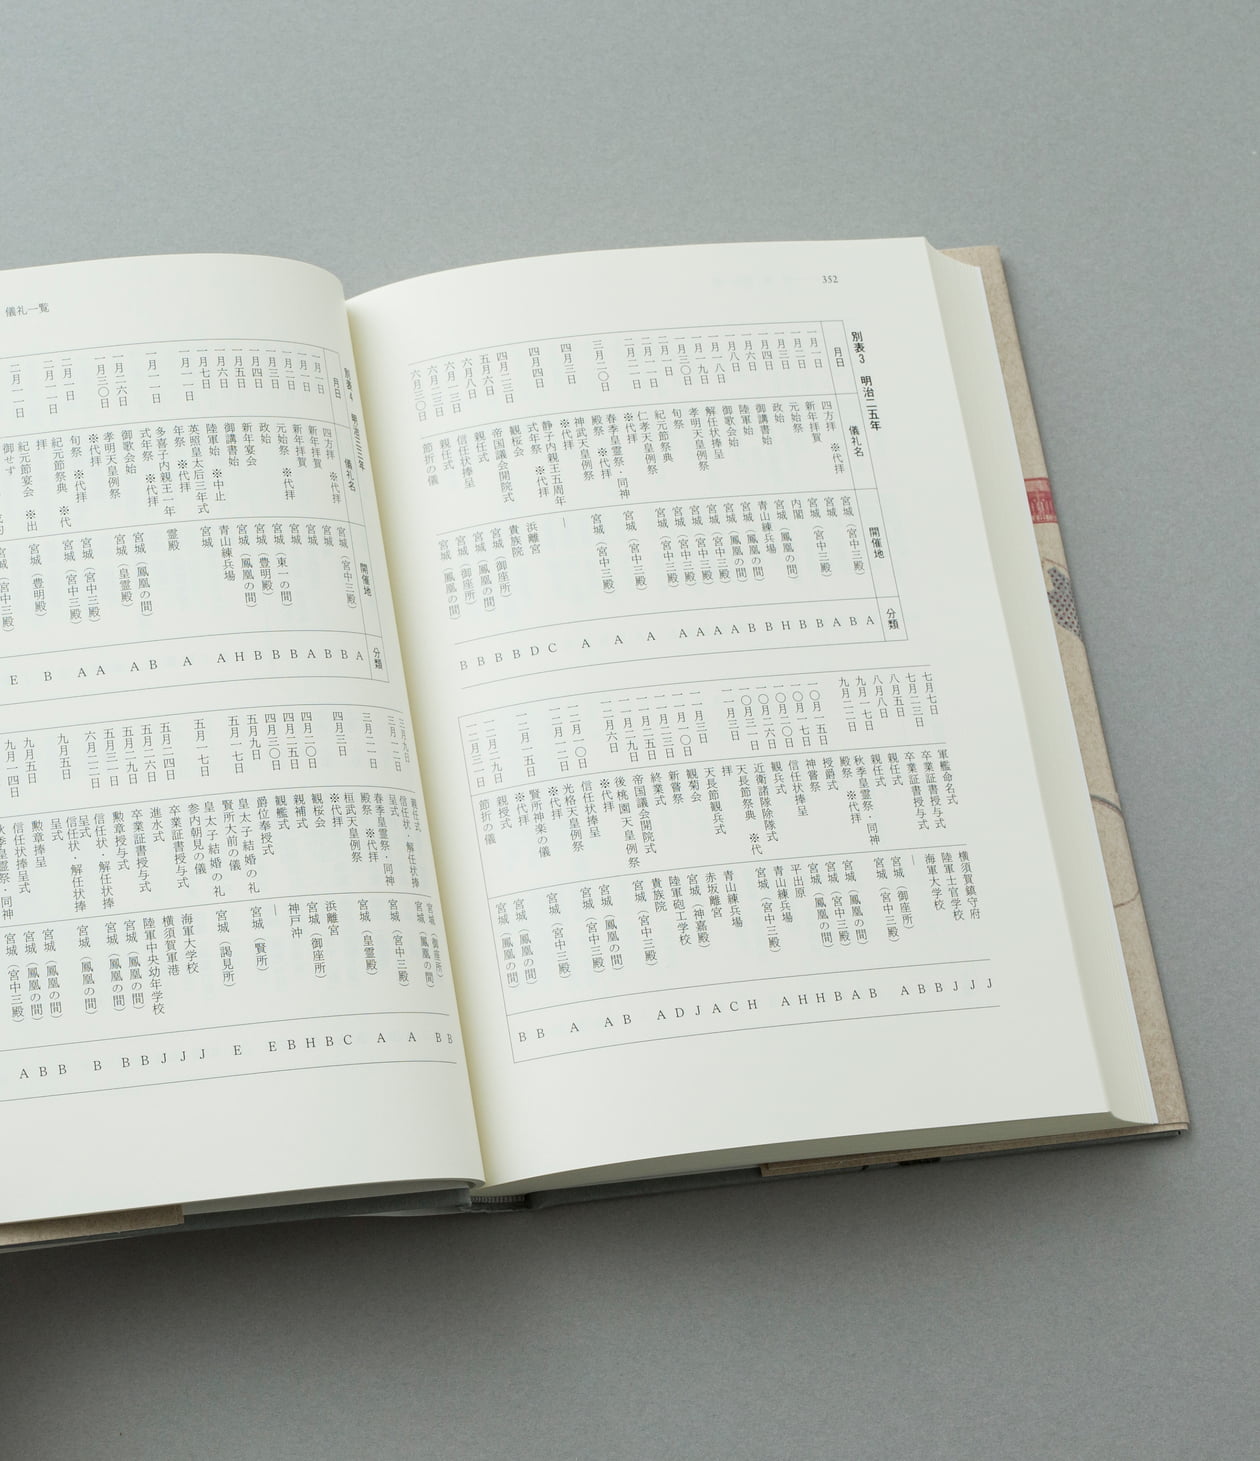 352
別表3　明治二五年
月日　儀礼名　開催地　分類
一月一日　四方拝　※代拝　宮城（宮中三殿）　A
一月一日　新年拝賀　宮城　B
一月三日　元始祭　宮城（宮中三殿）　A
一月四日　政始　内閣　B
一月六日　御講書始　宮城（鳳凰の間）　B
一月八日　陸軍始　青山練兵場　H
一月一八日　御歌会始　宮城（鳳凰の間）　B
一月一九日　解任状捧呈　宮城（鳳凰の間）　B
一月三〇日　孝明天皇例祭　宮城（宮中三殿）　A
二月一日　旬祭　宮城（宮中三殿）　A
二月一一日　紀元節祭典　宮城（宮中三殿）　A
二月二一日　仁孝天皇例祭　※代拝　宮城（宮中三殿）　A
三月二〇日　春季皇霊祭・同神殿祭　※代拝　宮城（宮中三殿）　A
四月三日　神武天皇例祭　※代拝　宮城（宮中三殿）　A
四月四日　静子内親王五周年式年祭　※代拝　―　A
四月二三日　観桜会　浜離宮　C
五月六日　帝国議会開院式　貴族院　D
六月八日　親任式　宮城（御座所）　B
六月一三日　信任状捧呈　宮城（鳳凰の間）　B
六月二三日　親任式　宮城（御座所）　B
六月三〇日　節折の儀　宮城（鳳凰の間）　B
七月七日　軍艦命名式　横須賀鎮守府　J
七月二三日　卒業証書授与式　陸軍士官学校　J
八月五日　卒業証書授与式　海軍大学校　J
八月八日　親任式　―　B
九月一七日　親任式　宮城（御座所）　B
九月二二日　秋季皇霊祭・同神殿祭　※代拝　宮城（宮中三殿）　A
一〇月一五日　授爵式　宮城（鳳凰の間）　B
一〇月一七日　神嘗祭　宮城（宮中三殿）　A
一〇月二〇日　信任状捧呈　宮城（鳳凰の間）　B
一〇月二六日　観兵式　平出原　H
一〇月三一日　近衛諸隊除隊式　青山練兵場　H
一一月三日　天長節祭典　※代拝　宮城（宮中三殿）　A
天長節観兵式　青山練兵場　H
一一月一〇日　観菊会　赤坂離宮　C
新嘗祭　宮城（神嘉殿）　A
一一月二五日　終業式　陸軍砲工学校　J
一一月二九日　帝国議会開院式　貴族院　D
一二月六日　後桃園天皇例祭　※代拝　宮城（宮中三殿）　A
一二月一〇日　信任状捧呈　宮城（鳳凰の間）　B
一二月一二日　光格天皇例祭　※代拝　宮城（宮中三殿）　A
一二月一五日　賢所神楽の儀　※代拝　宮城（宮中三殿）　A
一二月二九日　親授式　宮城（鳳凰の間）　B
一二月三一日　節折の儀　宮城（鳳凰の間）　B
儀礼一覧
別表4　明治三三年
月日　儀礼名　開催地　分類
一月一日　四方拝　※代拝　宮城（宮中三殿）　A
一月一日　新年拝賀　宮城　B
一月二日　新年拝賀　宮城　B
元始祭　※代拝　宮城　A
一月四日　政始　宮城（東一の間）　B
一月五日　新年宴会　宮城（豊明殿）　B
一月六日　御講書始　宮城（鳳凰の間）　B
陸軍始　※中止　青山練兵場　H
一月一一日　英照皇太后三年式年祭　※代拝　宮城　A
一月一一日　多喜子内親王一年式年祭　※代拝　霊殿　A
御歌会始　宮城（鳳凰の間）　B
一月三〇日　孝明天皇例祭　※代拝　宮城（皇霊殿）　A
二月一日　旬祭　※代拝　宮城（宮中三殿）　A
二月一一日　紀元節祭典　※代拝　宮城（宮中三殿）　A
二月一一日　紀元節宴会　※出御せず　宮城（豊明殿）　B
三月九日　親任式　宮城（御座所）　B
信任状・解任状捧呈式　宮城（鳳凰の間）　B
三月二一日　春季皇霊祭・同神殿祭　※代拝　宮城（宮中三殿）　A
四月三日　桓武天皇例祭　※代拝　宮城（皇霊殿）　A
四月二〇日　観桜会　浜離宮　C
四月二五日　親補式　宮城（御座所）　B
四月三〇日　観艦式　神戸沖　H
五月九日　爵位奉授式　―　B
皇太子結婚の礼　賢所大前の儀　宮城（賢所）　E
五月一七日　皇太子結婚の礼　参内朝見の儀　宮城（謁見所）　E
五月二四日　卒業証書授与式　海軍大学校　J
五月二六日　進水式　横須賀軍港　J
五月二九日　卒業証書授与式　陸軍中央幼年学校　J
勲章授与式　宮城（鳳凰の間）　B
六月二二日　信任状・解任状捧呈式　宮城（鳳凰の間）　B
九月五日　信任状・解任状捧呈式　宮城（鳳凰の間）　B
九月五日　勲章捧呈　宮城（鳳凰の間）　B
九月一四日　信任状捧呈式　宮城（鳳凰の間）　B
秋季皇霊祭・同神　宮城（宮中三殿）　A